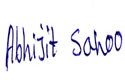 Abhijit Sahoo